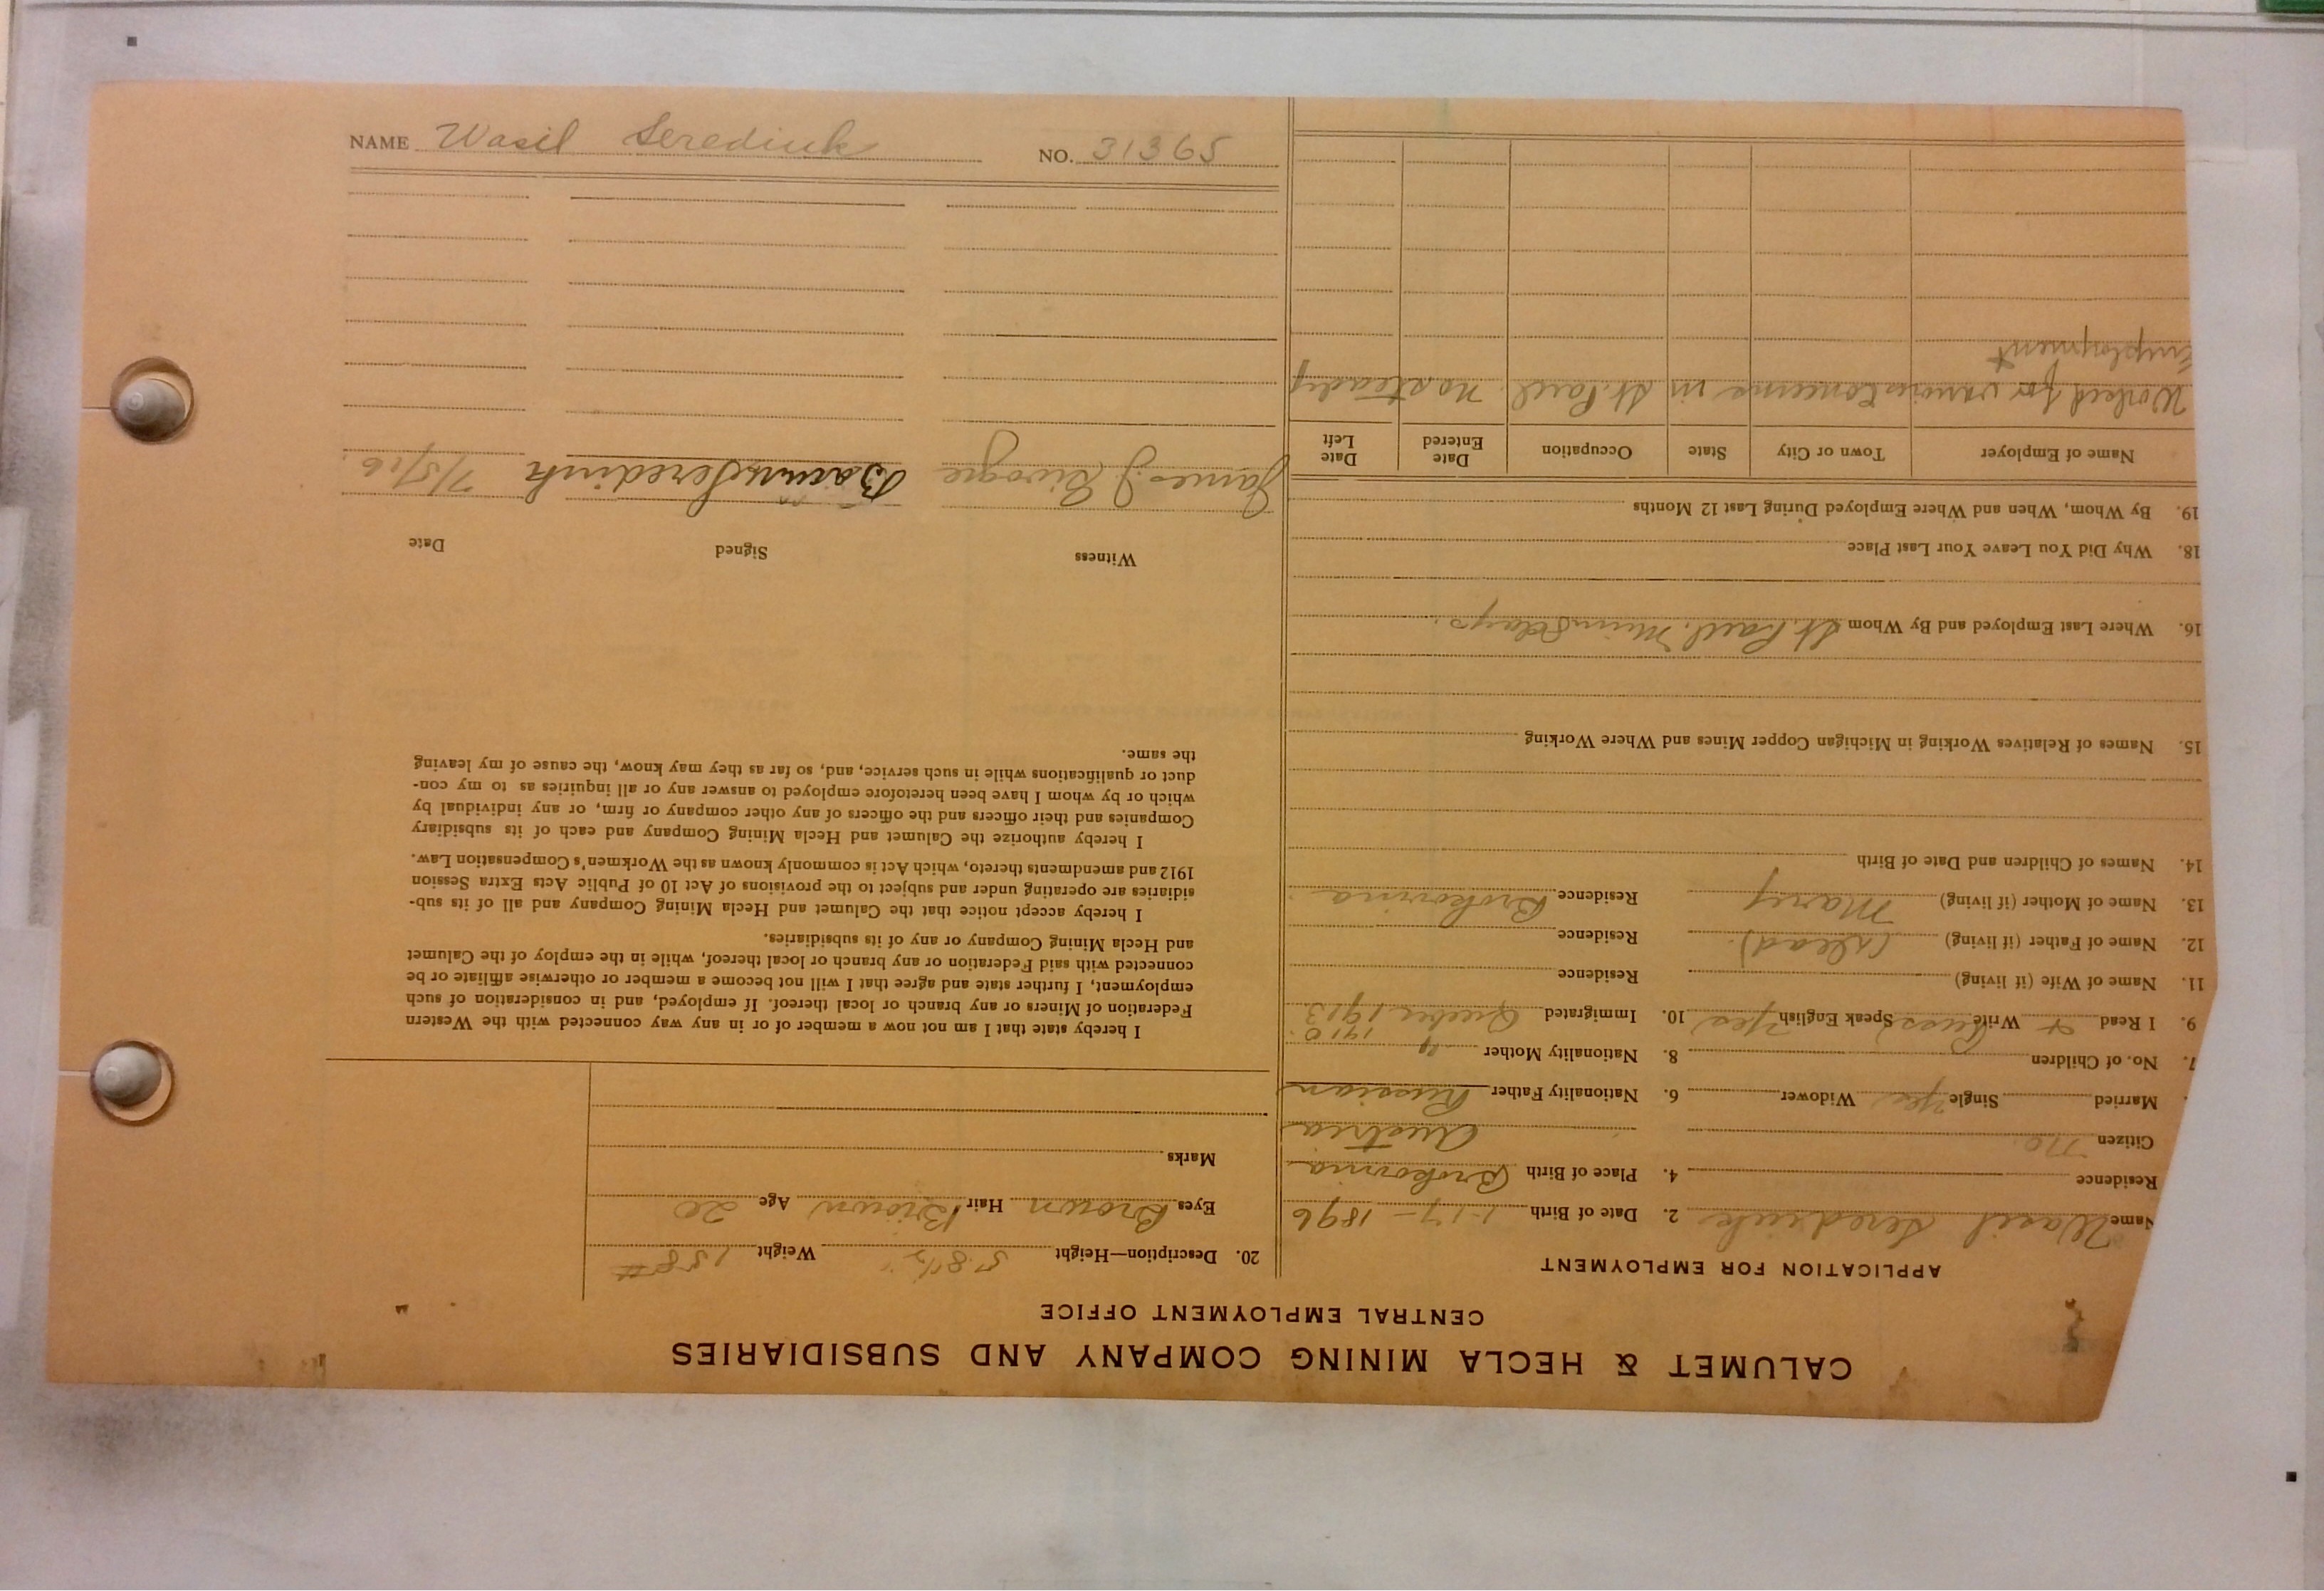 CALUMET & HECLA MINING COMPANY AND SUBSIDIARIES
CENTRAL EMPLOYMENT OFFICE
APPLICATION FOR EMPLOYMENT
Name Wasil Serediuk 2. Date of Birth 1-17-1896
Residence 4. Place of Birth Brokovina
Citizen no. Austria
Married Single Yes Widower 6. Nationality Father Russian
7. No. of Children 8. Nationality Mother " 1910
9. I Read + Write Russ Speak English Yes 10. Immigrated Quebec 1913
11. Name of Wife (if living) Residence
12. Name of Father (if living) (dead). Residence
13. Name of Mother (if living) Mary Residence Brokovina
14. Names of Children and Date of Birth
15. Names of Relatives Working in Michigan Copper Mines and Where Working
16. Where Last Employed and By Whom St. Paul, Minn 8 days.
18. Why Did You Leave Your Last Place
19. By Whom, When and Where Employed During Last 12 Months
Name of Employer Town or City State Occupation Date Entered Date Left
Worked for various concerns in St. Paul. no steady
Employment
20. Description—Height 5' 8½" Weight 158#
Eyes Brown Hair Brown Age 20
Marks
I hereby state that I am not now a member of or in any way connected with the Western
Federation of Miners or any branch or local thereof. If employed, and in consideration of such
employment, I further state and agree that I will not become a member or otherwise affiliate or be
connected with said Federation or any branch or local thereof, while in the employ of the Calumet
and Hecla Mining Company or any of its subsidiaries.
I hereby accept notice that the Calumet and Hecla Mining Company and all of its sub-
sidiaries are operating under and subject to the provisions of Act 10 of Public Acts Extra Session
1912 and amendments thereto, which Act is commonly known as the Workmen's Compensation Law.
I hereby authorize the Calumet and Hecla Mining Company and each of its subsidiary
Companies and their officers and the officers of any other company or firm, or any individual by
which or by whom I have been heretofore employed to answer any or all inquiries as to my con-
duct or qualifications while in such service, and, so far as they may know, the cause of my leaving
the same.
Witness Signed Date
James J. Serediuk 7/5/16.
NAME Wasil Serediuk NO. 31365